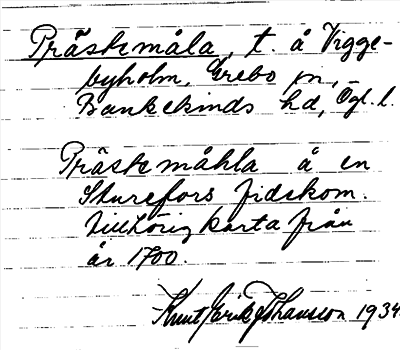 Präskmåla, t. å Vigge-
byholm, Grebo sn,
Bankekinds hd, Ögl. l.
Präskmåhla å en
Sturefors fideskom.
tillhörig karta från
år 1700.
Knut Erik Johansson 1934.